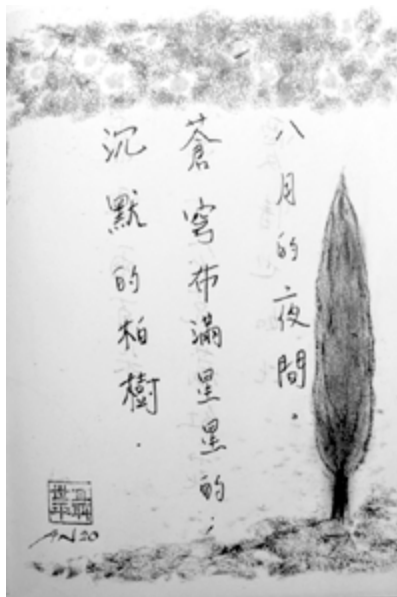 八月的夜間。
蒼穹布滿星星的,
沉默的柏樹.
AN20